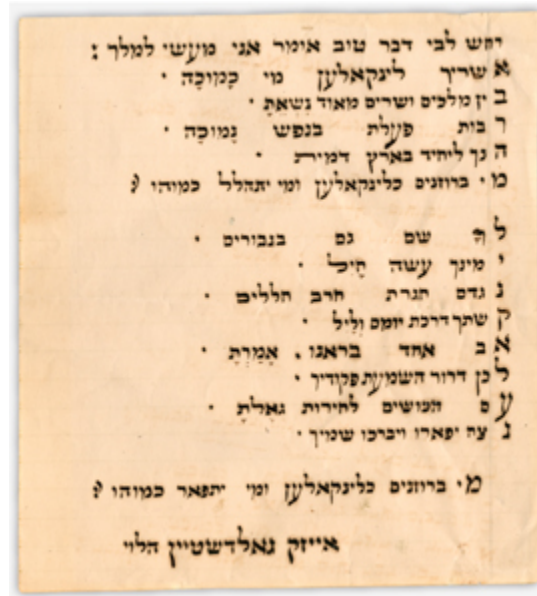 ירחש לבי דבר טוב אומר אני מעשי למלך :
אשריך לינקאלען מי כָמוֹכָה ·
בין מלכים ושרים מאוד נִשֵאתָ ·
רבות פעלת בנפש נְמוּכָה ·
הנך ליחיד בארץ דמית ·
מי ברוזנים כלינקאלען ומי יתהלל כמוהו ?
לך שם גם בגבורים ·
ימינך עשה חָיִל ·
נגדם תגרת חרב חללים ·
קשתך דרכת יומם וָלֵיל ·
אב אחד בראנו . אָמַרְתָּ ·
לכן דרור השמעת פקודיך ·
עם הכושים לחירות גאלתָ ·
נצח יפארו ויברכו שמיך ·
מי ברוזנים כלינקאלען ומי יתפאר כמוהו ?
אייזק גאלדשטיין הלוי